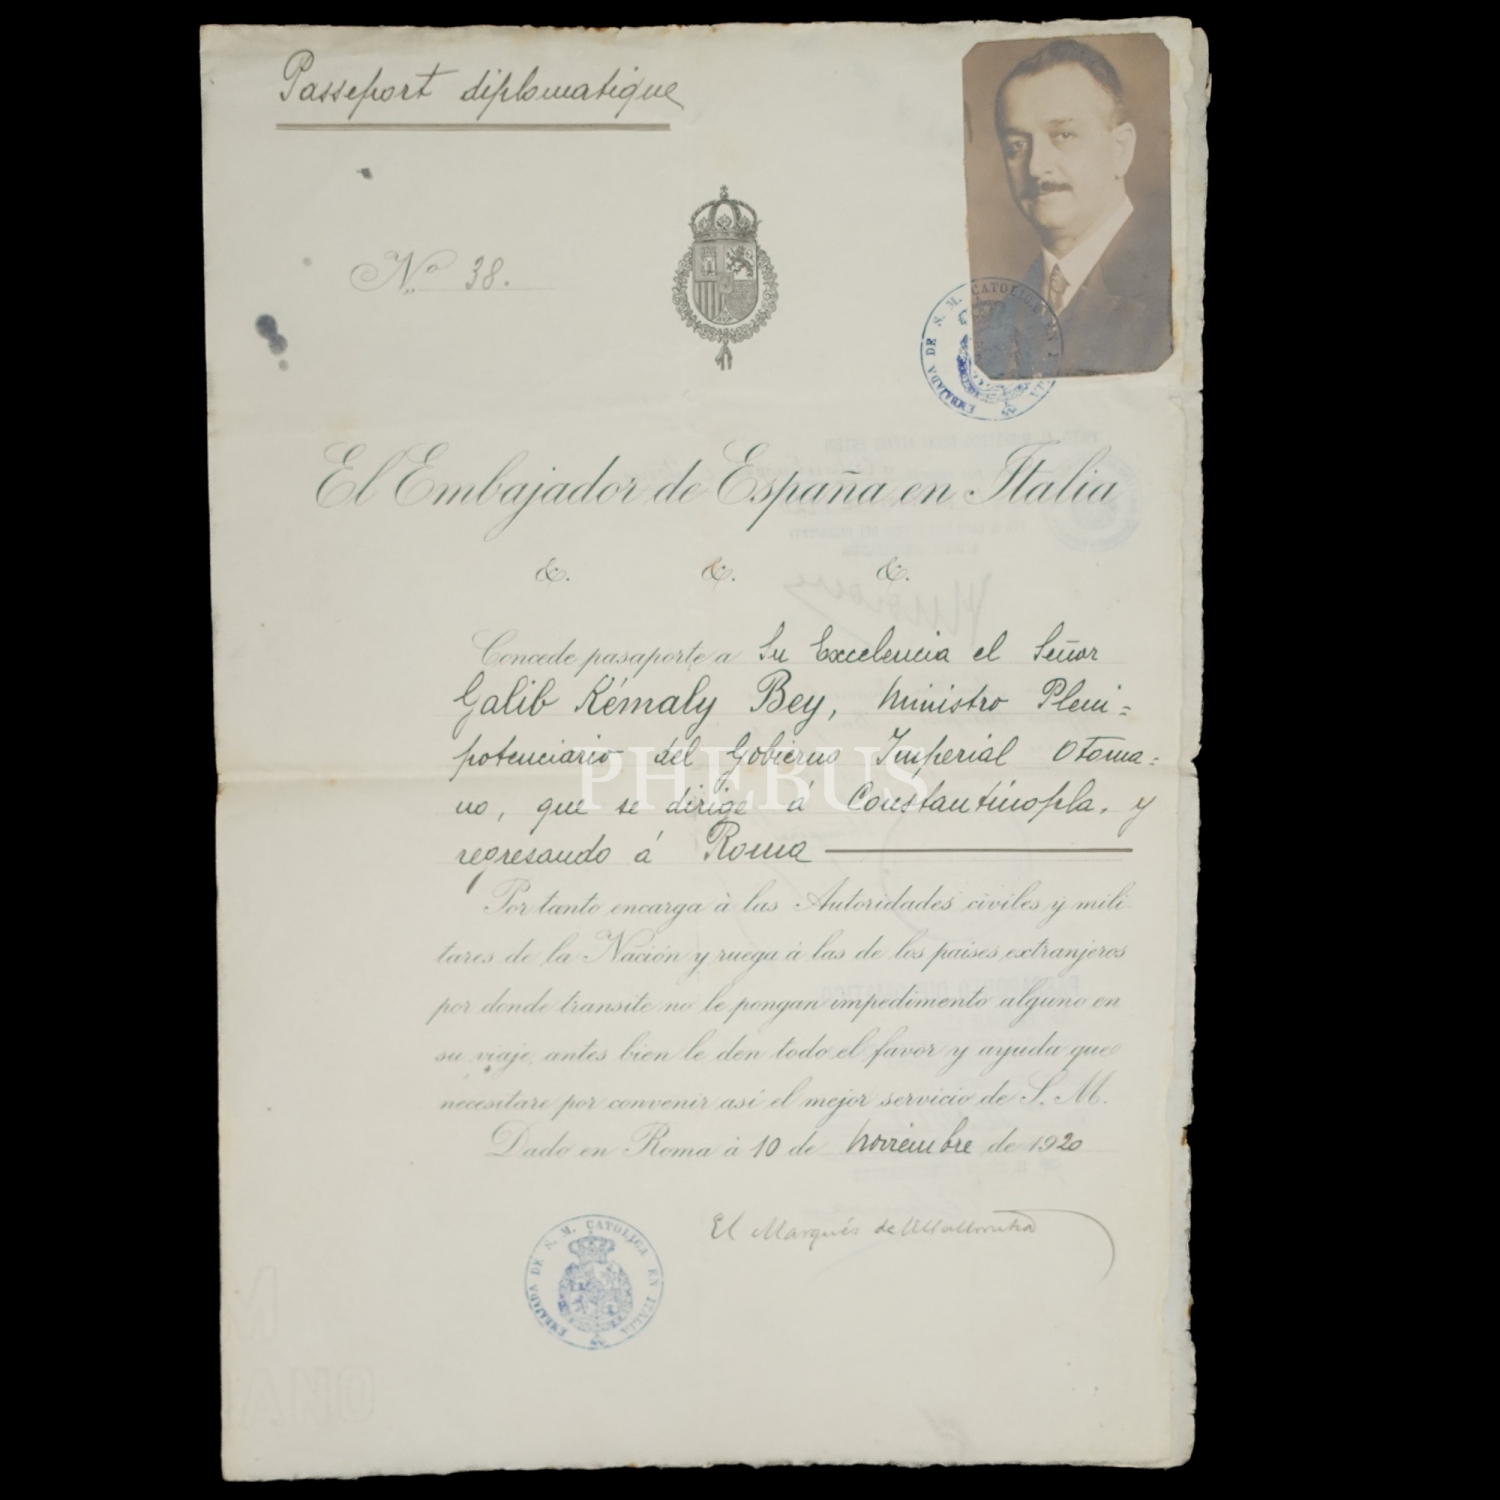 Passeport diplomatique
Nº 38.
EMBAJADA DE S. M. CATOLICA EN ITALIA
El Embajador de España en Italia
&. &. &.
Concede pasaporte a Su Excelencia el Señor
Galib Kémaly Bey, Ministro Pleni=
potenciario del Gobierno Imperial Otoma=
no, que se dirige á Constantinopla, y
regresando á Roma
Por tanto encarga à las Autoridades civiles y mili
tares de la Nación y ruega á las de los paises extranjeros
por donde transite no le pongan impedimento alguno en
su viaje, antes bien le den todo el favor y ayuda que
necesitare por convenir así el mejor servicio de S. M.
Dado en Roma á 10 de Noviembre de 1920
El Marqués de Villaurrutia
EMBAJADA DE S. M. CATOLICA EN ITALIA
PHEBUS